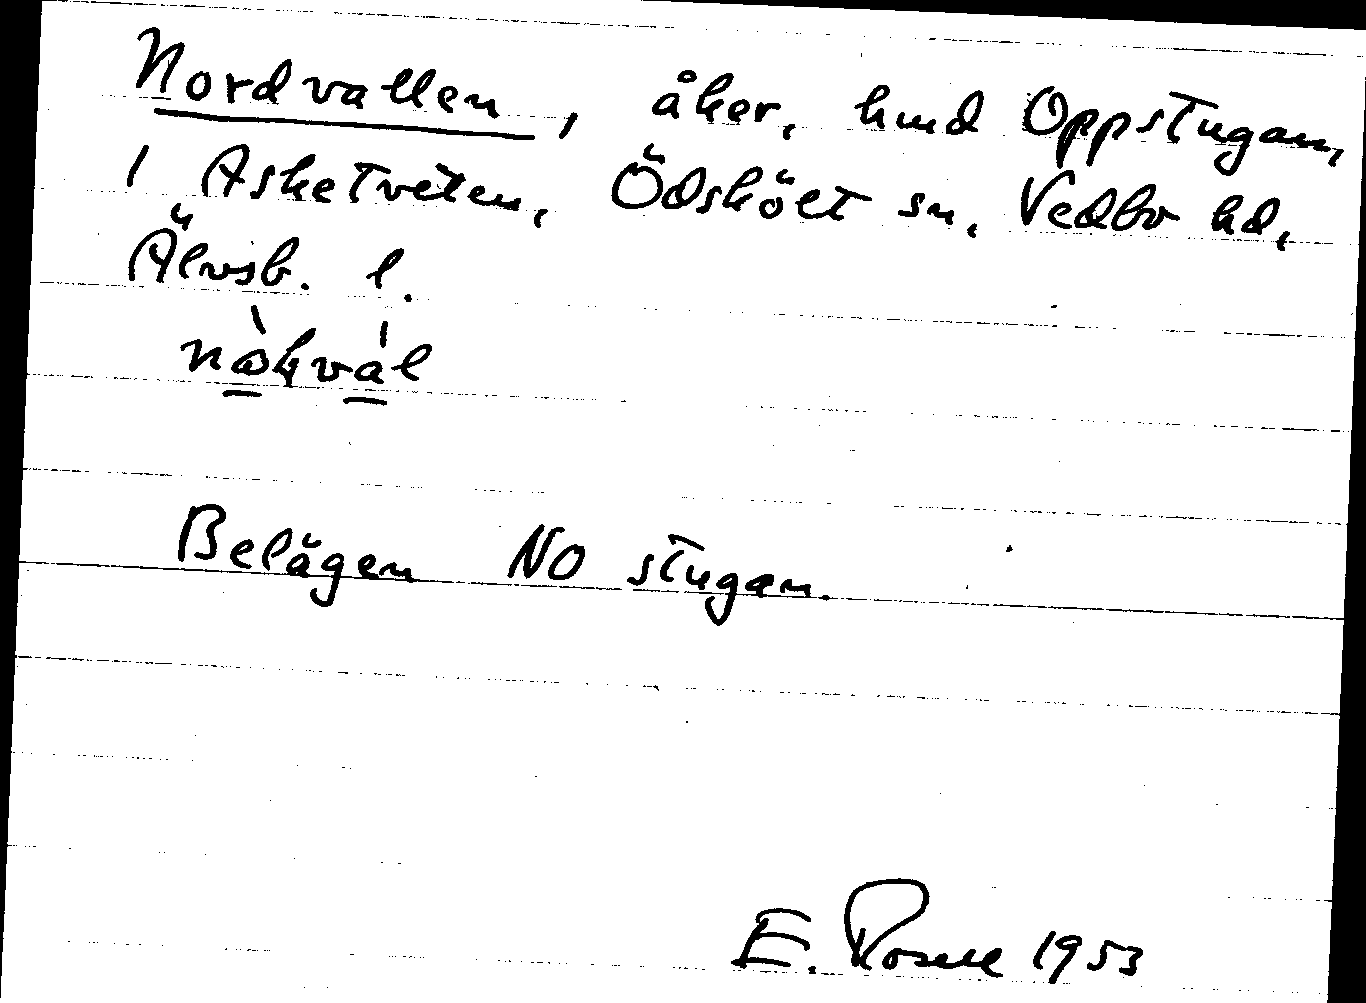 Nordvallen, åker, hmd Oppstugan,
1 Asketveten, Ödskölt sn, Vedbo hd,
Älvsb. l.
Belägen NO stugan.
E. Rosell 1953